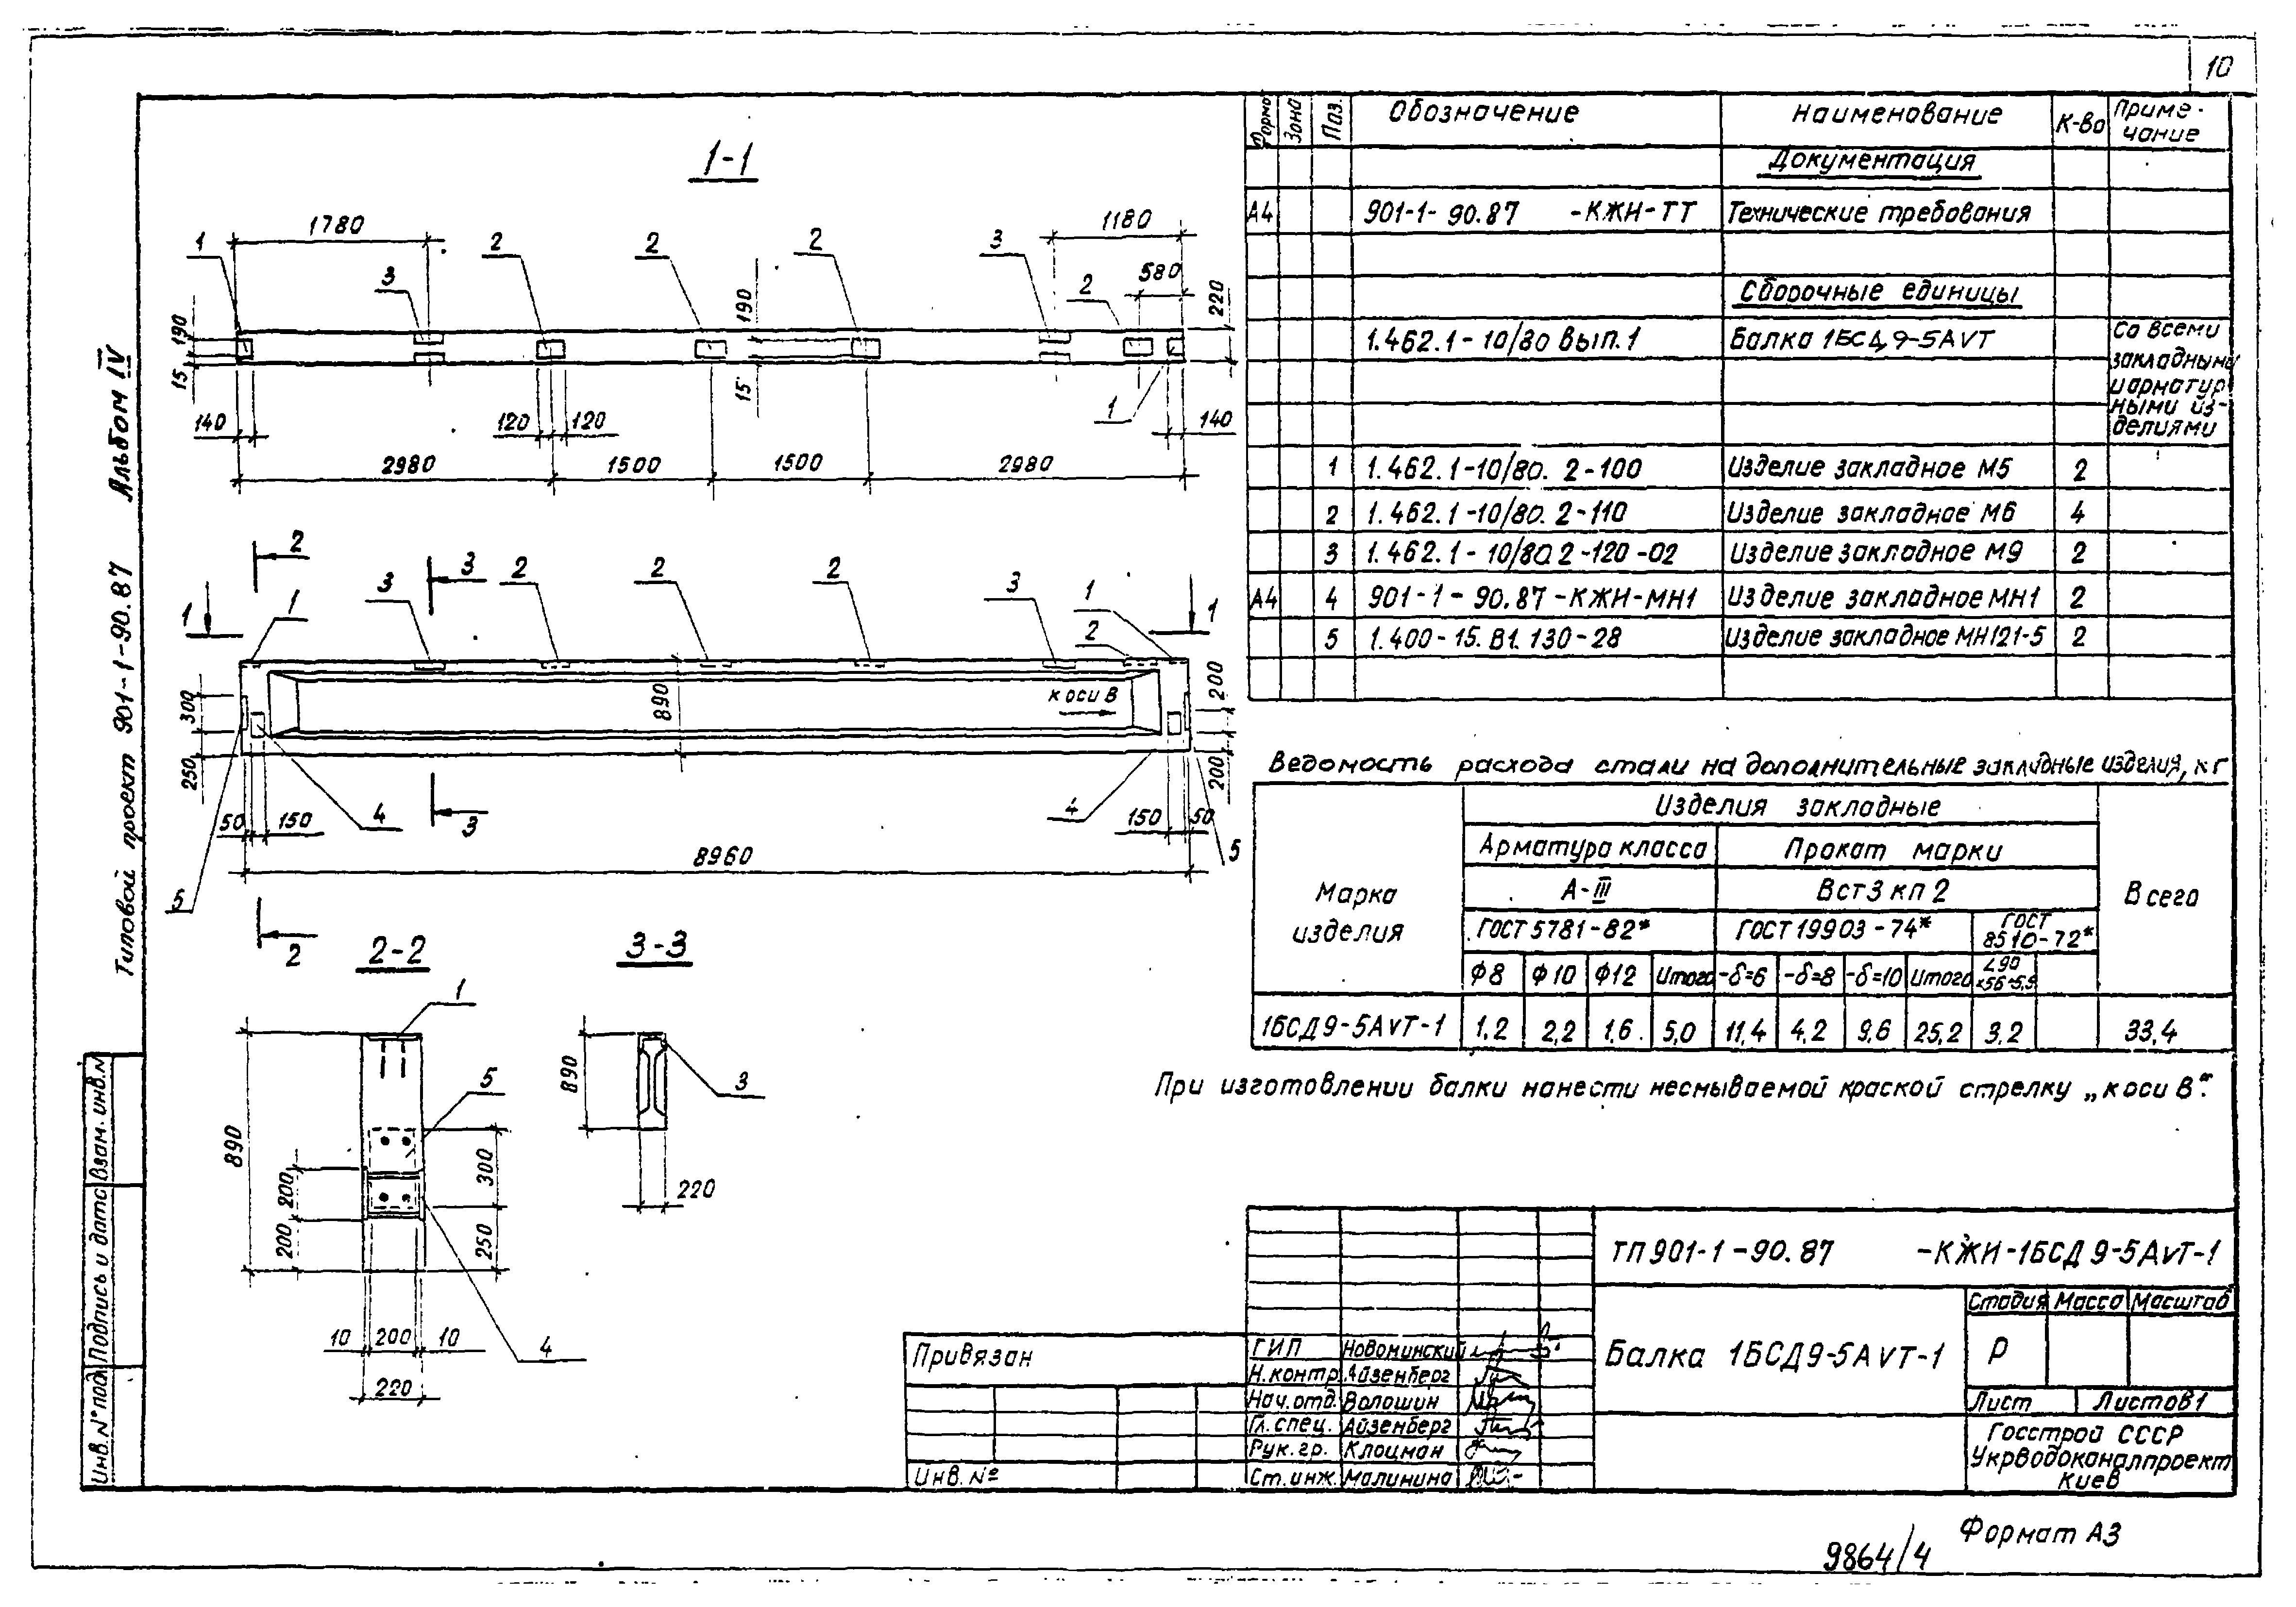 10
Типовой проект 901-1-90.87 Альбом IV
1-1
1780
1180
580
220
1
3
2
2
2
3
2
1
190
15
190
15
140
120
120
140
2980
1500
1500
2980
2
3
1
1
1
3
2
2
2
3
1
2
300
250
890
к оси В
200
200
50
150
4
4
150
50
5
5
8960
2
3
2-2
1
890
5
200
200
300
250
10
200
10
4
220
3-3
890
3
220
Формат
Зона
Поз.
Обозначение
Наименование
К-во
Приме-
чание
Документация
А4
901-1-90.87 -КЖИ-ТТ
Технические требования
Сборочные единицы
1.462.1-10/80 вып.1
Балка 1БСД9-5АvТ
Со всеми
закладными
и арматур-
ными из-
делиями
1 1.462.1-10/80. 2-100 Изделие закладное М5 2
2 1.462.1-10/80. 2-110 Изделие закладное М6 4
3 1.462.1-10/80.2-120-02 Изделие закладное М9 2
А4 4 901-1-90.87-КЖИ-МН1 Изделие закладное МН1 2
5 1.400-15.В1.130-28 Изделие закладное МН121-5 2
Ведомость расхода стали на дополнительные закладные изделия, кг
Марка
изделия
Изделия закладные
Всего
Арматура класса
Прокат марки
А-III
Вст3кп2
ГОСТ 5781-82*
ГОСТ 19903-74*
ГОСТ
8510-72*
Ф8 Ф10 Ф12 Итого -δ=6 -δ=8 -δ=10 Итого
∠90
×56×5,5
1БСД9-5АvТ-1 1,2 2,2 1,6 5,0 11,4 4,2 9,6 25,2 3,2 33,4
При изготовлении балки нанести несмываемой краской стрелку „к оси В".
ТП 901-1-90.87 -КЖИ-1БСД9-5АvТ-1
Балка 1БСД9-5АvТ-1
Стадия Масса Масштаб
Р
Лист Листов 1
Госстрой СССР
Укрводоканалпроект
Киев
Привязан
Инв.№
ГИП Новоминский
Н.контр. Айзенберг
Нач.отд. Волошин
Гл.спец. Айзенберг
Рук.гр. Клоцман
Ст.инж. Малинина
Взам. инв.№
Подпись и дата
Инв.№ подл.
Формат А3
9864/4